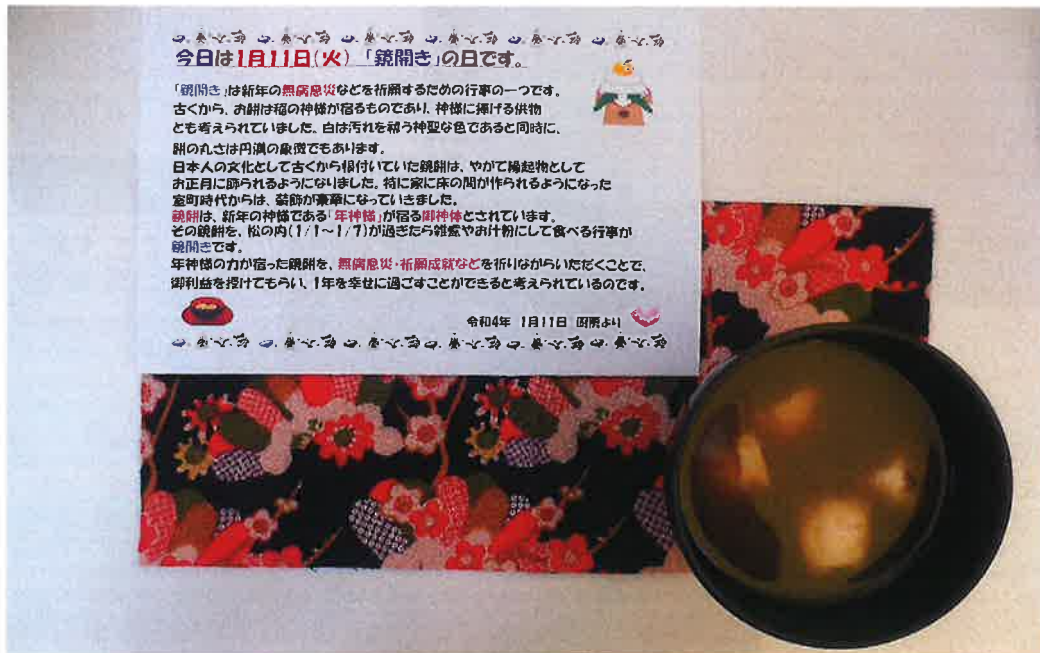 今日は1月11日(火)「鏡開き」の日です。
「鏡開き」は新年の無病息災などを祈願するための行事の一つです。
古くから、お餅は稲の神様が宿るものであり、神様に捧げる供物
とも考えられていました。白は汚れを祓う神聖な色であると同時に、
餅の丸さは円満の象徴でもあります。
日本人の文化として古くから根付いていた鏡餅は、やがて縁起物として
お正月に飾られるようになりました。特に家に床の間が作られるようになった
室町時代からは、装飾が豪華になっていきました。
鏡餅は、新年の神様である「年神様」が宿る御神体とされています。
その鏡餅を、松の内(1/1〜1/7)が過ぎたら雑煮やお汁粉にして食べる行事が
鏡開きです。
年神様の力が宿った鏡餅を、無病息災・祈願成就などを祈りながらいただくことで、
御利益を授けてもらい、1年を幸せに過ごすことができると考えられているのです。
令和4年 1月11日 厨房より